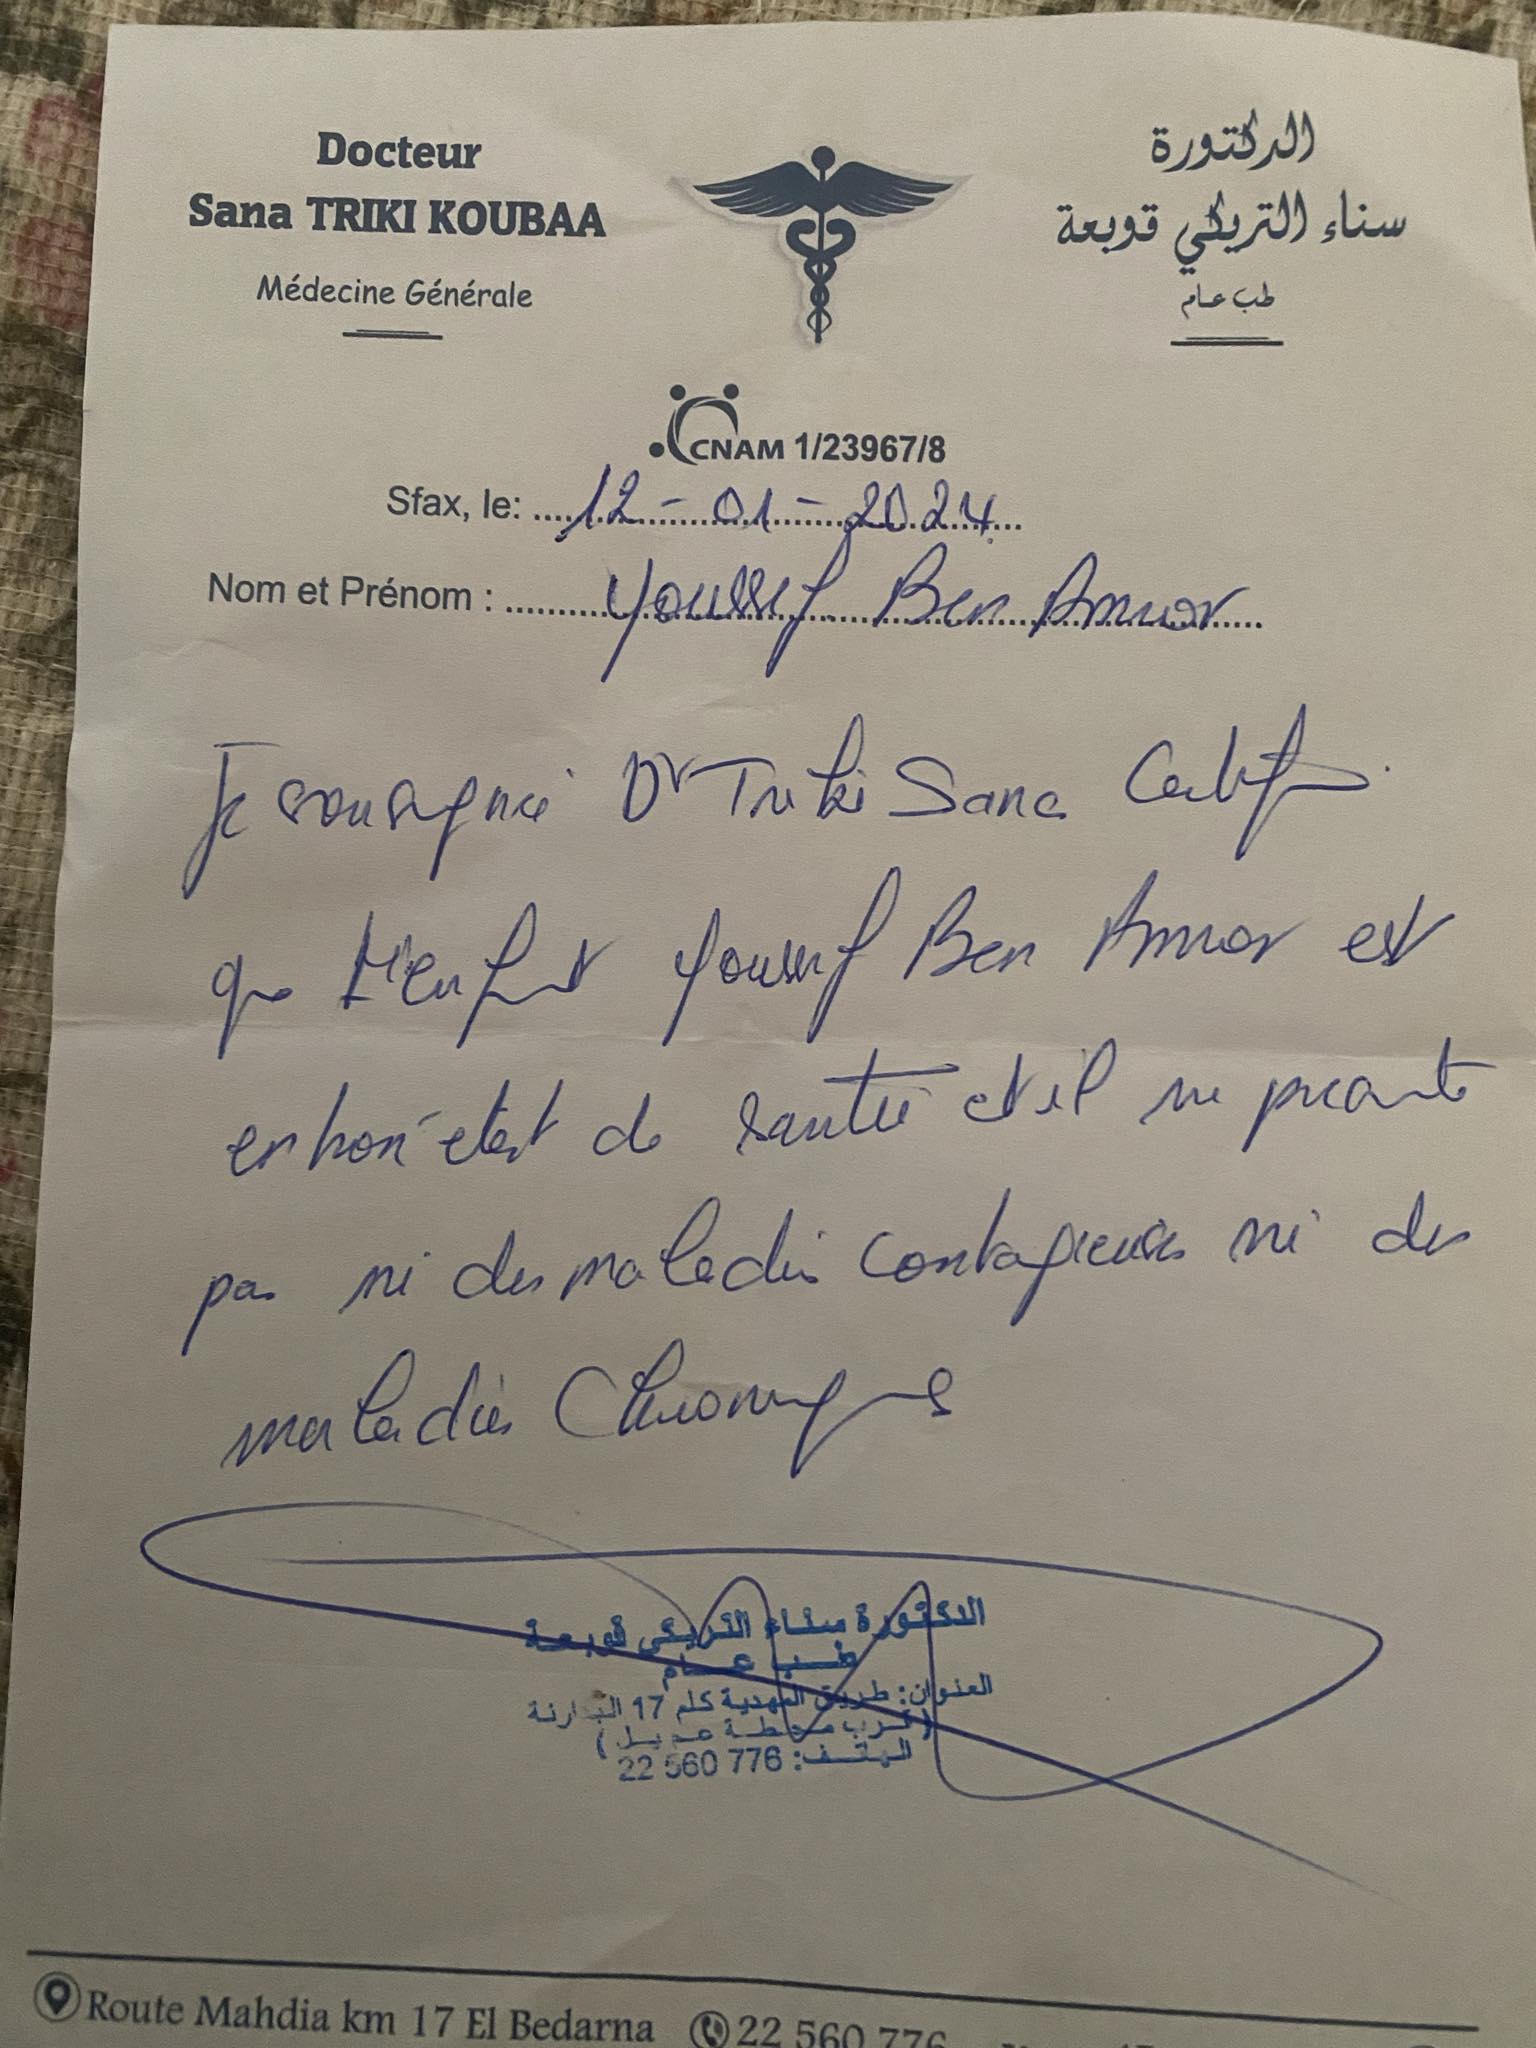 Docteur
Sana TRIKI KOUBAA
Médecine Générale
الدكتورة
سناء التريكي قوبعة
طب عام
CNAM 1/23967/8
Sfax, le: 12-01-2024
Nom et Prénom : Youssef Ben Ammor
Je soussigné Dr Triki Sana Certifie
que l'enfant Youssef Ben Ammor est
en bon état de santé et il ne présente
pas ni des maladies contagieuses ni des
maladies Chroniques
الدكتورة سناء التريكي قوبعة
طب عام
العنوان: طريق المهدية كلم 17 البدارنة
(قرب محطة عديل)
الهاتف: 22 560 776
Route Mahdia km 17 El Bedarna 22 560 776